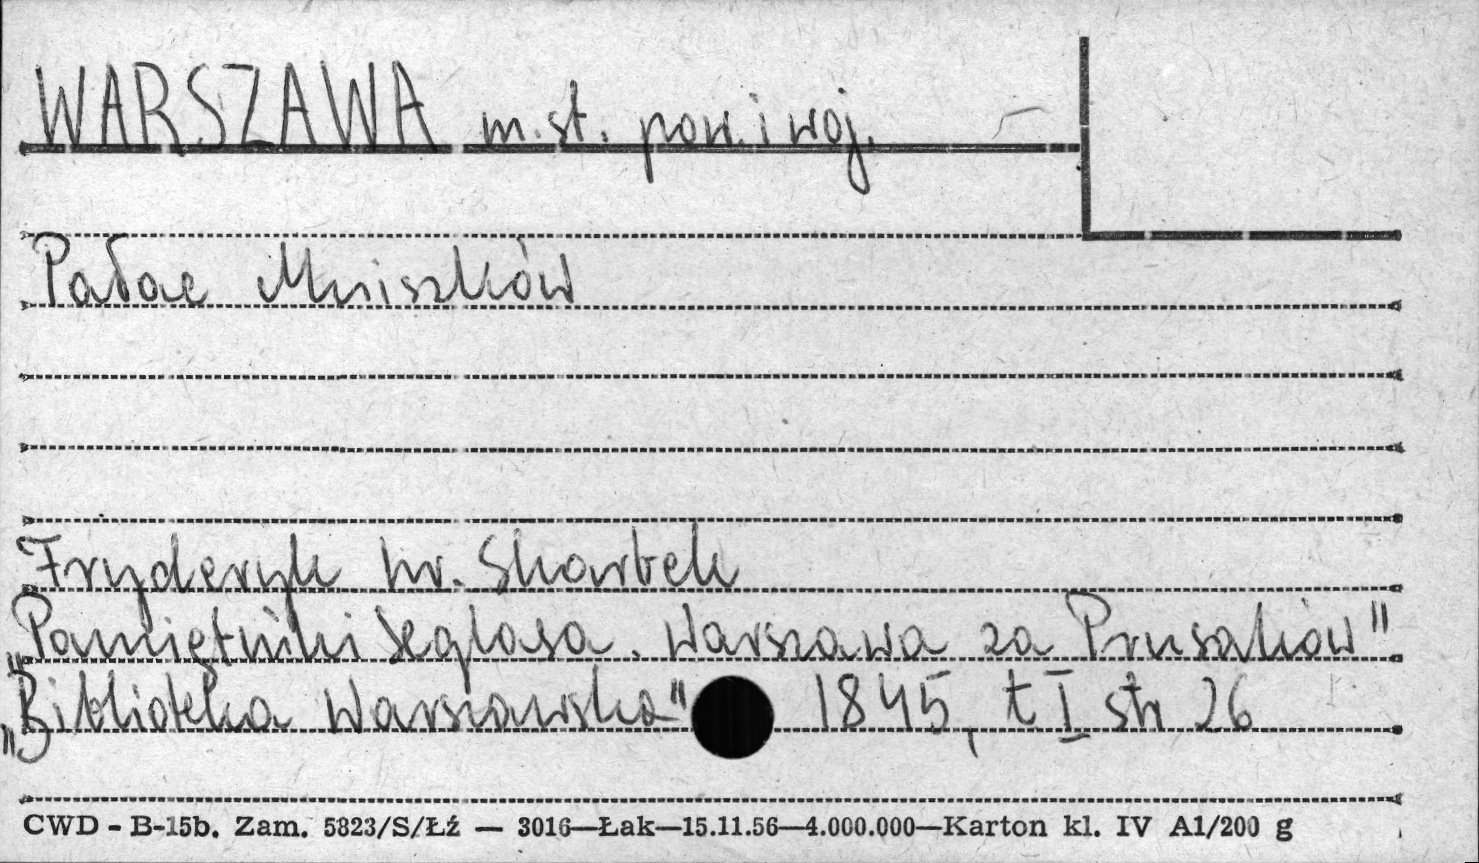 WARSZAWA m.st. pow. i woj.
Pałac Mniszków
Fryderyk hr. Skarbek
„Pamiętniki Seglasa. Warszawa za Prusaków"
„Biblioteka Warszawska" 1845, t I str 26
CWD - B-15b. Zam. 5823/S/Łź — 3016—Łak—15.11.56—4.000.000—Karton kl. IV A1/200 g